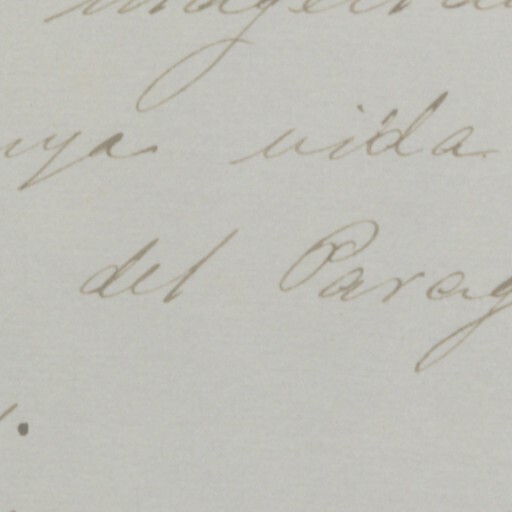 ya vida
del Parag